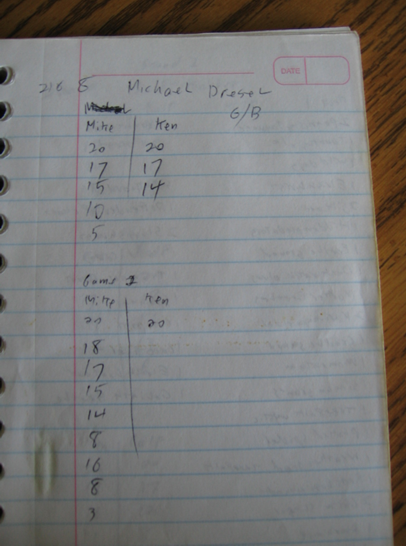 DATE
216 8 Michael Dreser
G/B
Mike Ken
20 20
17 17
15 14
10
5
Game 2
Mike Ken
20 20
18
17
15
14
8
16
8
3